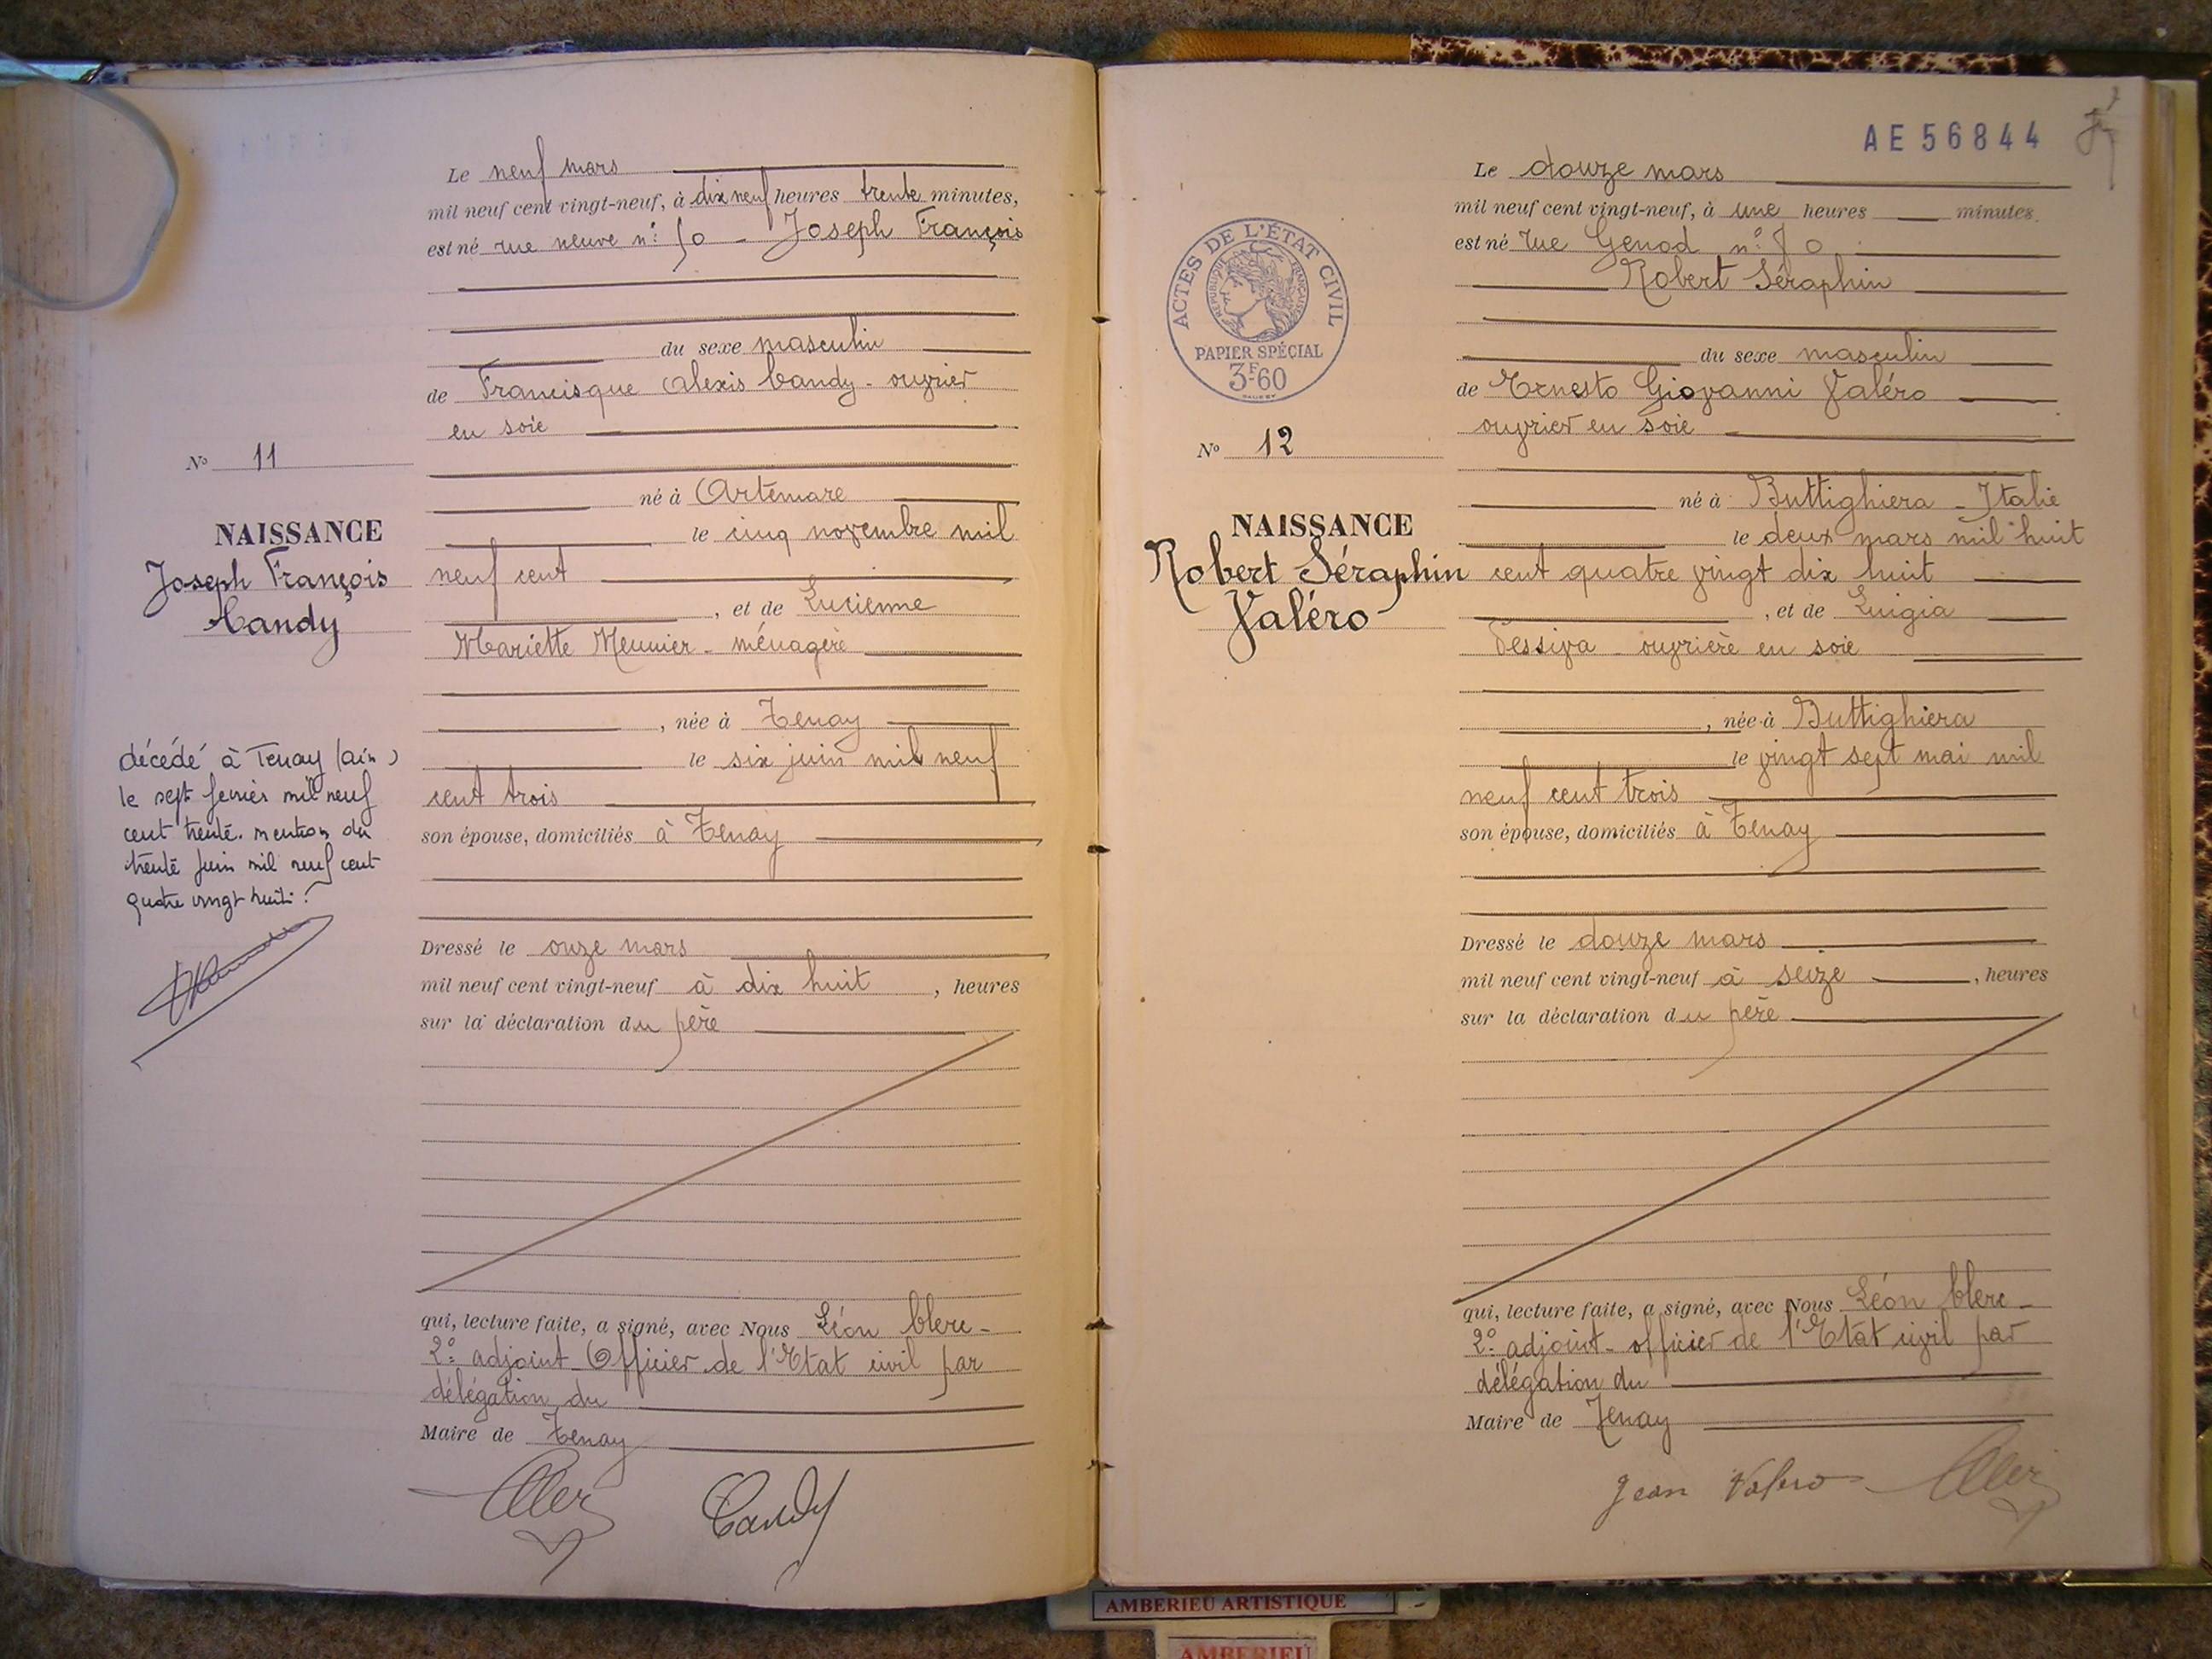 Le neuf mars
mil neuf cent vingt-neuf, à dix neuf heures trente minutes,
est né rue neuve n° 50 - Joseph François
du sexe masculin
de Francisque Alexis Candy - ouvrier
en soie
né à Artemare
le cinq novembre mil
neuf cent
, et de Lucienne
Mariette Meunier - ménagère
, née à Tenay
le six juin mil neuf
cent trois
son épouse, domiciliés à Tenay
Dressé le onze mars
mil neuf cent vingt-neuf à dix huit , heures
sur la déclaration du père
qui, lecture faite, a signé, avec Nous Léon Clerc -
2° adjoint - Officier de l'Etat civil par
délégation du
Maire de Tenay
Candy
No 11
NAISSANCE
Joseph François
Candy
décédé à Tenay (ain)
le sept février mil neuf
cent trente. mention du
trente juin mil neuf cent
quatre vingt huit.
AE 56844
ACTES DE L'ÉTAT CIVIL
RÉPUBLIQUE FRANÇAISE
PAPIER SPÉCIAL
3F60
No 12
NAISSANCE
Robert Séraphin
Valéro
Le douze mars
mil neuf cent vingt-neuf, à une heures minutes
est né rue Genod n°
Robert Séraphin
du sexe masculin
de Ernesto Giovanni Valéro
ouvrier en soie
né à Buttighiera - Italie
le deux mars mil huit
cent quatre vingt dix huit
, et de Luigia
Pessiva - ouvrière en soie
, née à Buttighiera
le vingt sept mai mil
neuf cent trois
son épouse, domiciliés à Tenay
Dressé le douze mars
mil neuf cent vingt-neuf à seize , heures
sur la déclaration du père
qui, lecture faite, a signé, avec Nous Léon Clerc -
2° adjoint - officier de l'Etat civil par
délégation du
Maire de Tenay
Jean Valero
AMBERIEU ARTISTIQUE
AMBERIEU